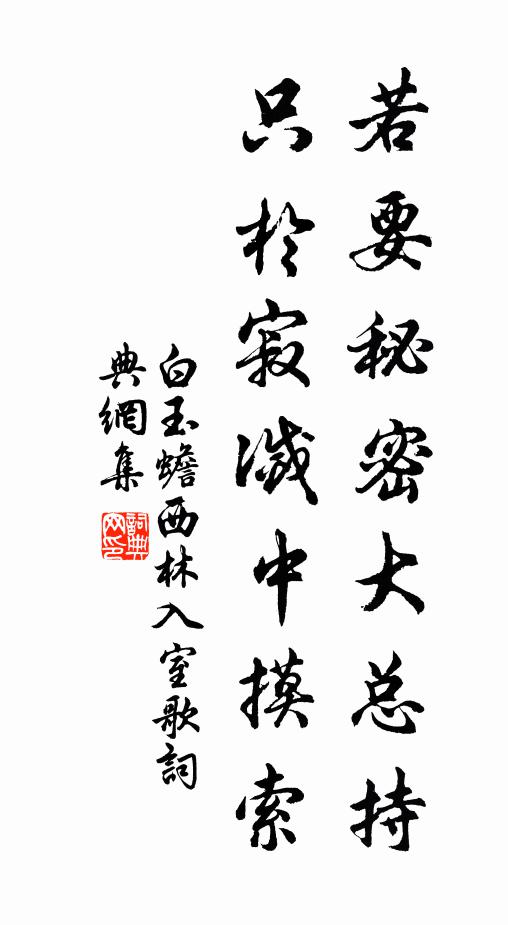 若要秘密大总持
只於寂滅中摸索
白玉蟾西林入室歌詞
典網集
詞典網印